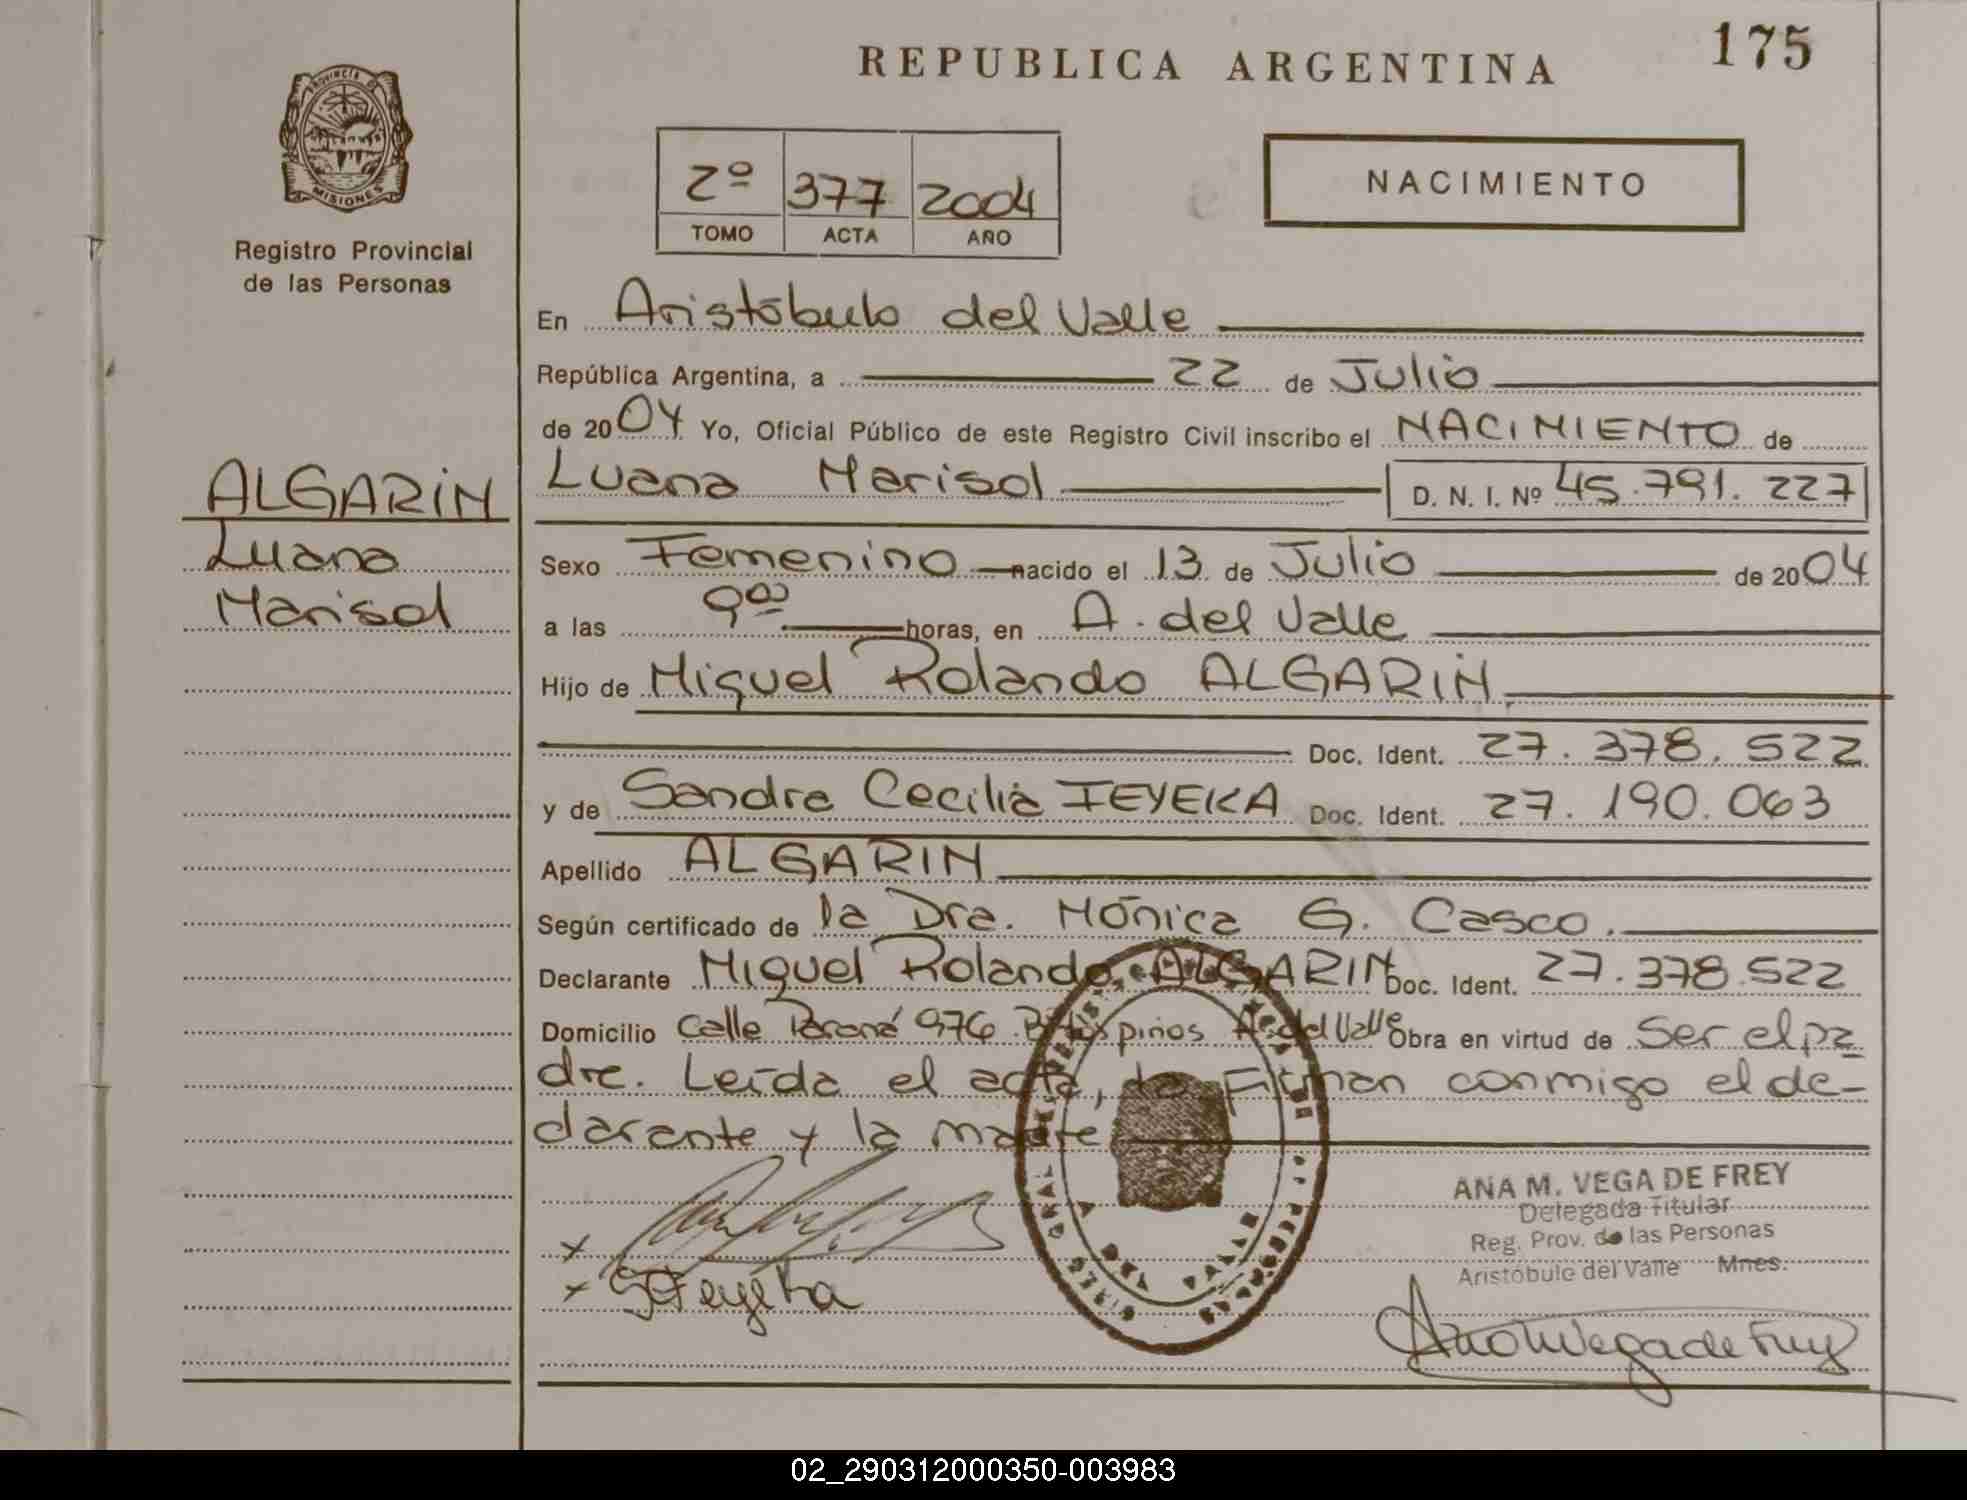 REPUBLICA ARGENTINA
175
PROVINCIA DE MISIONES
Registro Provincial
de las Personas
2º 377 2004
TOMO ACTA AÑO
NACIMIENTO
ALGARIN
Luana
Marisol
En Aristóbulo del Valle
República Argentina, a 22 de Julio
de 2004 Yo, Oficial Público de este Registro Civil inscribo el NACIMIENTO de
Luana Marisol D. N. I. Nº 45.791.227
Sexo Femenino nacido el 13 de Julio de 2004
a las 9⁰⁰ horas, en A. del Valle
Hijo de Miguel Rolando ALGARIN
Doc. Ident. 27.378.522
y de Sandra Cecilia FEYEKA Doc. Ident. 27.190.063
Apellido ALGARIN
Según certificado de la Dra. Mónica G. Casco.
Declarante Miguel Rolando ALGARIN Doc. Ident. 27.378.522
Domicilio Calle Paraná 976 piños A. del Valle Obra en virtud de ser el pa
dre. Leída el acta, la Firman conmigo el de-
clarante y la madre
ANA M. VEGA DE FREY
Delegada Titular
Reg. Prov. de las Personas
Aristóbulo del Valle Mnes.
x
x SCFeyeka
Ana M Vega de Frey
02_290312000350-003983